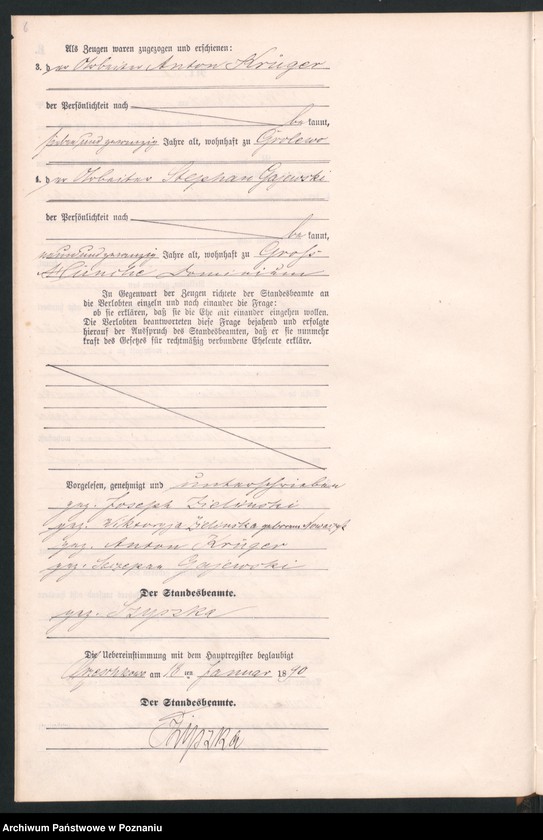 6
Als Zeugen waren zugezogen und erschienen:
3. der Arbeiter Anton Krüger
der Persönlichkeit nach
be kannt,
siebenundzwanzig Jahre alt, wohnhaft zu Grolewo
4. der Arbeiter Stephan Gajewski
der Persönlichkeit nach
be kannt,
neunundzwanzig Jahre alt, wohnhaft zu Gross
Münche Dominium
In Gegenwart der Zeugen richtete der Standesbeamte an
die Verlobten einzeln und nach einander die Frage:
ob sie erklären, daß sie die Ehe mit einander eingehen wollen.
Die Verlobten beantworteten diese Frage bejahend und erfolgte
hierauf der Ausspruch des Standesbeamten, daß er sie nunmehr
kraft des Gesetzes für rechtmäßig verbundene Eheleute erkläre.
Vorgelesen, genehmigt und unterschrieben
gez. Joseph Zielinski
gez. Wiktoryja Zielinska geborene
gez. Anton Krüger
gez. Szczepan Gajewski
Der Standesbeamte.
gez. Szyszka
Die Uebereinstimmung mit dem Hauptregister beglaubigt
am ten Januar 1890
Der Standesbeamte.
Szyszka
Archiwum Państwowe w Poznaniu